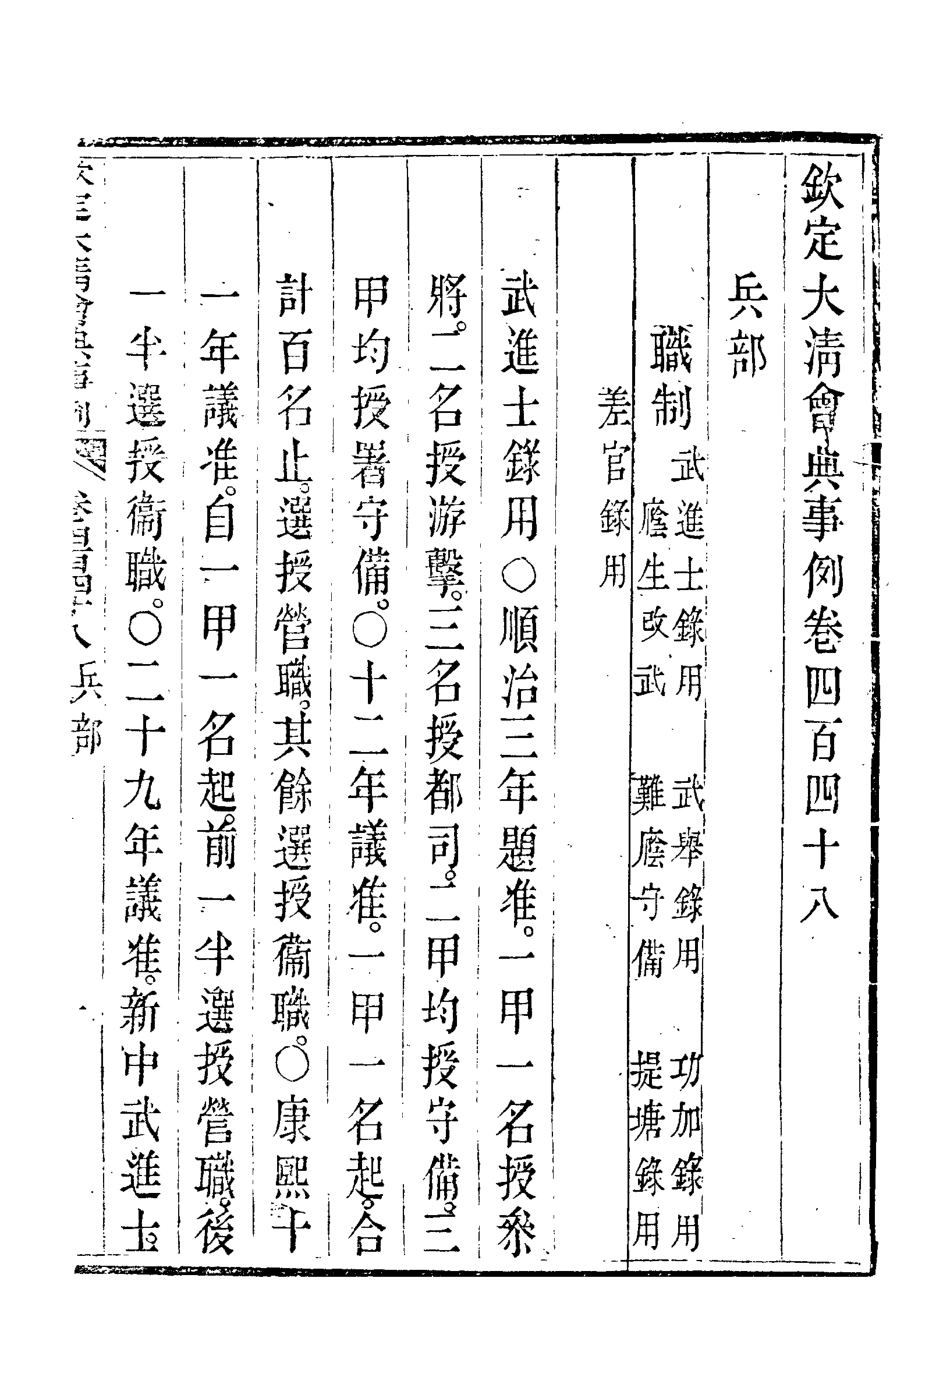 欽定大清會典事例卷四百四十八
兵部
職制 武進士錄用 武舉錄用 功加錄用
廕生改武 難廕守備 提塘錄用
差官錄用
武進士錄用○順治三年題准。一甲一名授叅
將。二名授游擊。三名授都司。二甲均授守備。三
甲均授署守備。○十二年議准。一甲一名起。合
計百名止。選授營職。其餘選授衞職。○康熙十
一年議准。自一甲一名起。前一半選授營職。後
一半選授衞職。○二十九年議准。新中武進士。
欽定大清會典事例 卷四百四十八 兵部 一